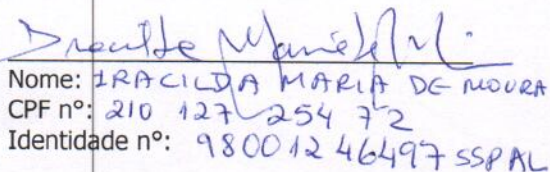 Nome: IRACILDA MARIA DE MOURA
CPF nº: 210 127 254 72
Identidade nº: 98001246497 SSP AL